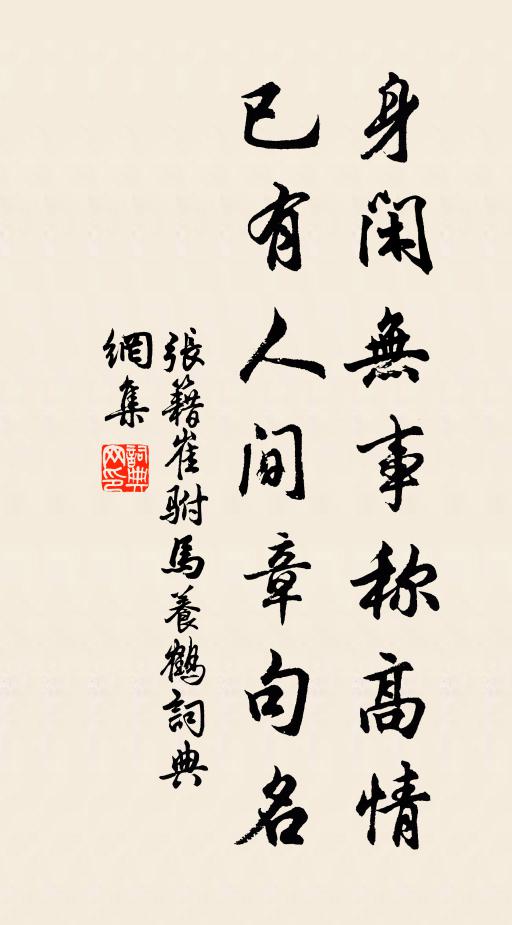 身閑無事称高情
已有人间章句名
張籍崔駙馬養鶴詞典
網集
詞典
网印